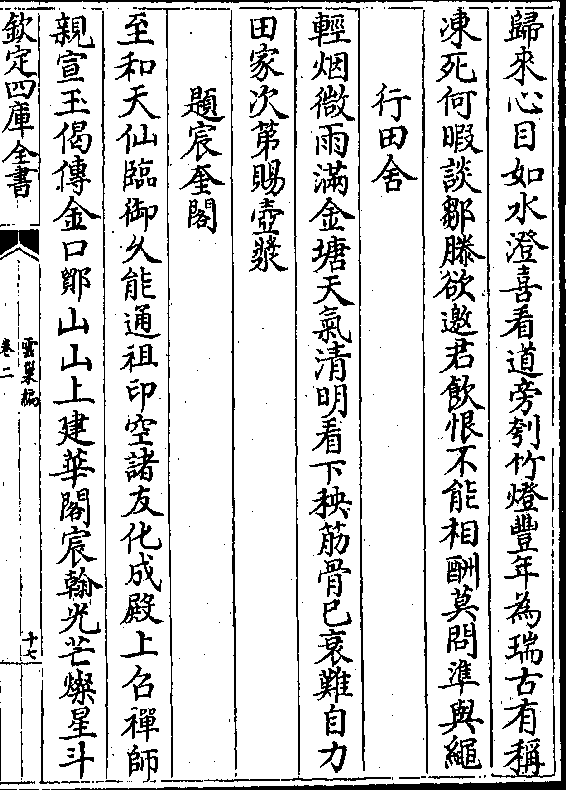 歸來心目如水澄喜看道旁刳竹燈豐年為瑞古有稱
凍死何暇談鄒滕欲邀君飲恨不能相酬莫問準與繩
行田舍
輕烟微雨滿金塘天氣清明看下秧筋骨已衰難自力
田家次第賜壺漿
題宸奎閣
至和天仙臨御久能通祖印空諸友化成殿上召禪師
親宣玉偈傳金口鄮山山上建華閣宸翰光芒燦星斗
欽定四庫全書
雲巢編
卷二
十七